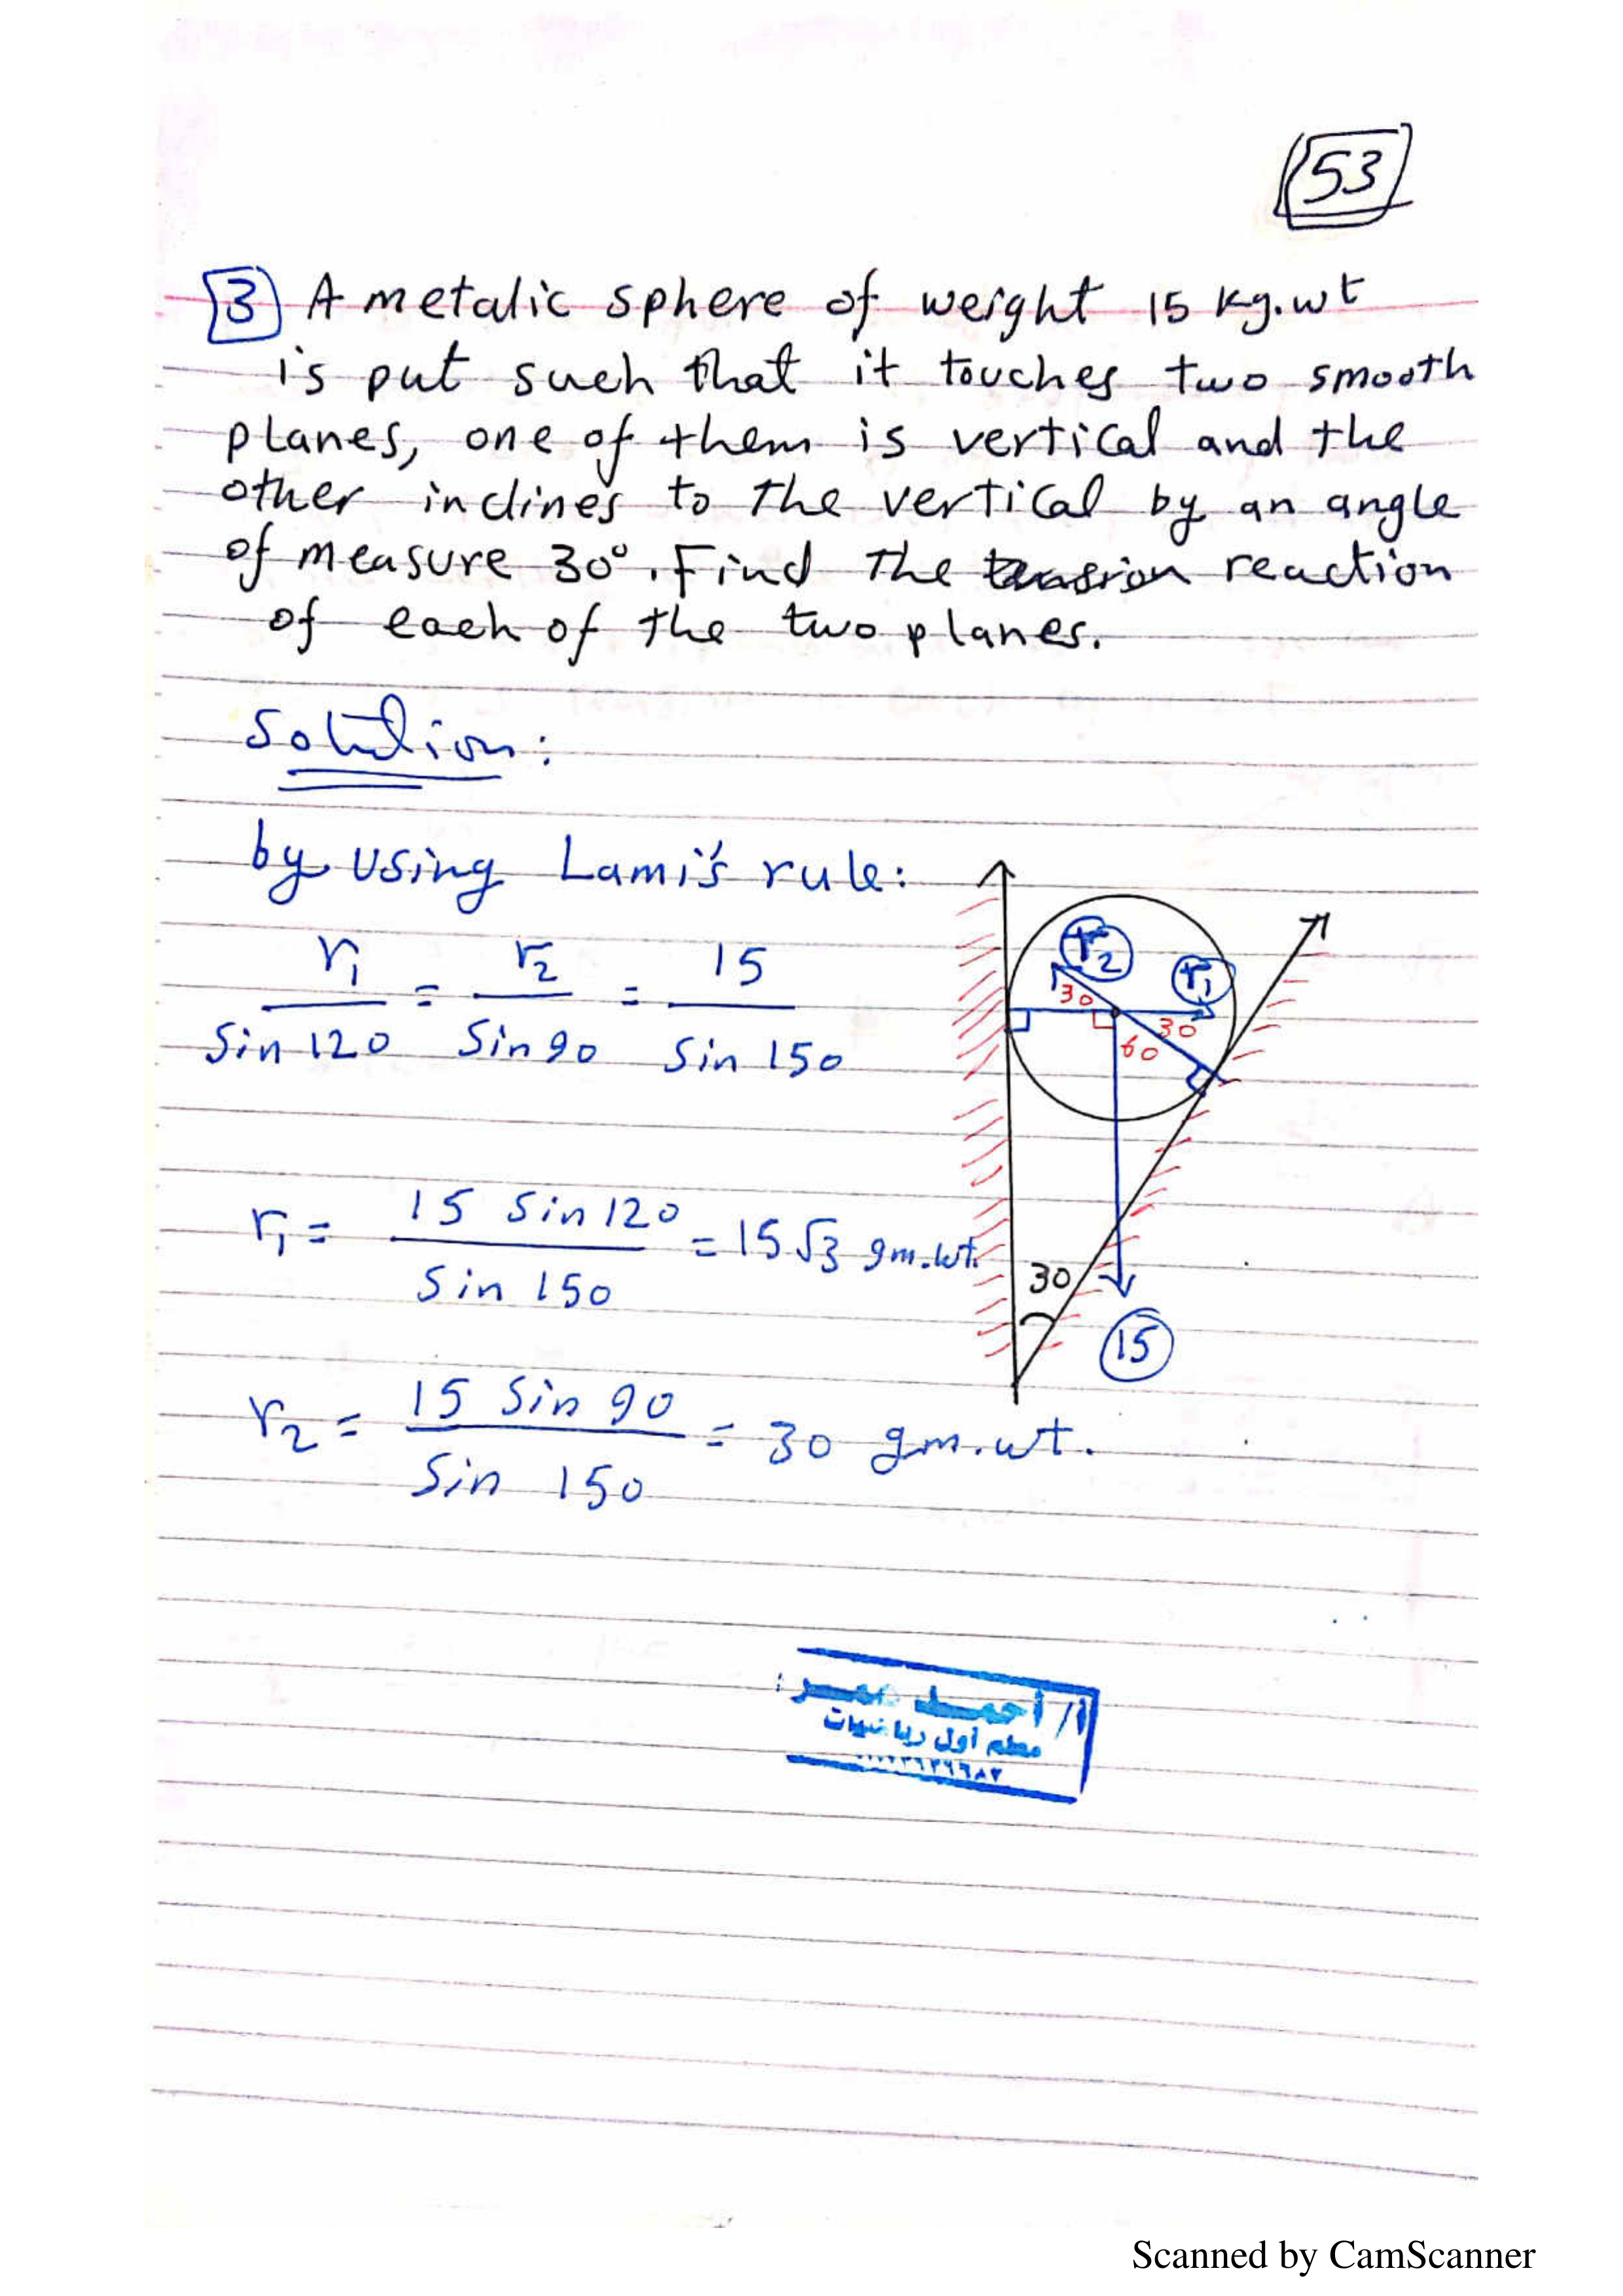 53
3 A metalic sphere of weight 15 kg.wt
is put such that it touches two smooth
planes, one of them is vertical and the
other inclines to the vertical by an angle
of measure 30°. Find the tension reaction
of each of the two planes.
Solution:
by using Lami's rule:
r₁ / Sin 120 = r₂ / Sin 90 = 15 / Sin 150
r₂ r₁
30 30
60
r₁ = 15 Sin 120 / Sin 150 = 15 √3 gm.wt.
30
15
r₂ = 15 Sin 90 / Sin 150 = 30 gm.wt.
أ/ أحمد عمر
معلم أول رياضيات
Scanned by CamScanner